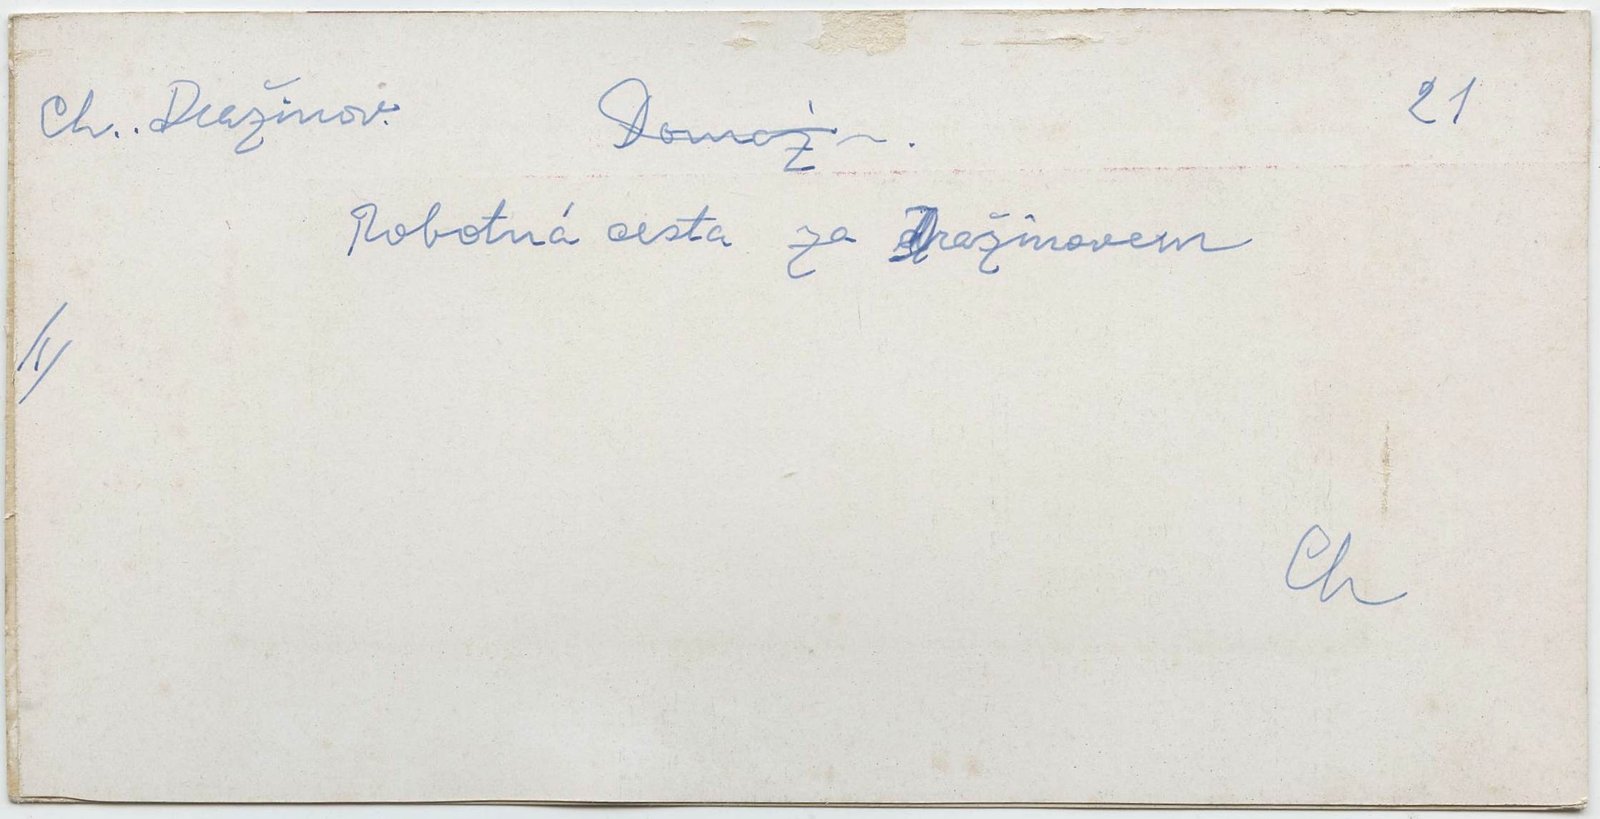 Ch.. Dražinov. Domaž. 21
Robotná cesta za Dražinovem
Ch